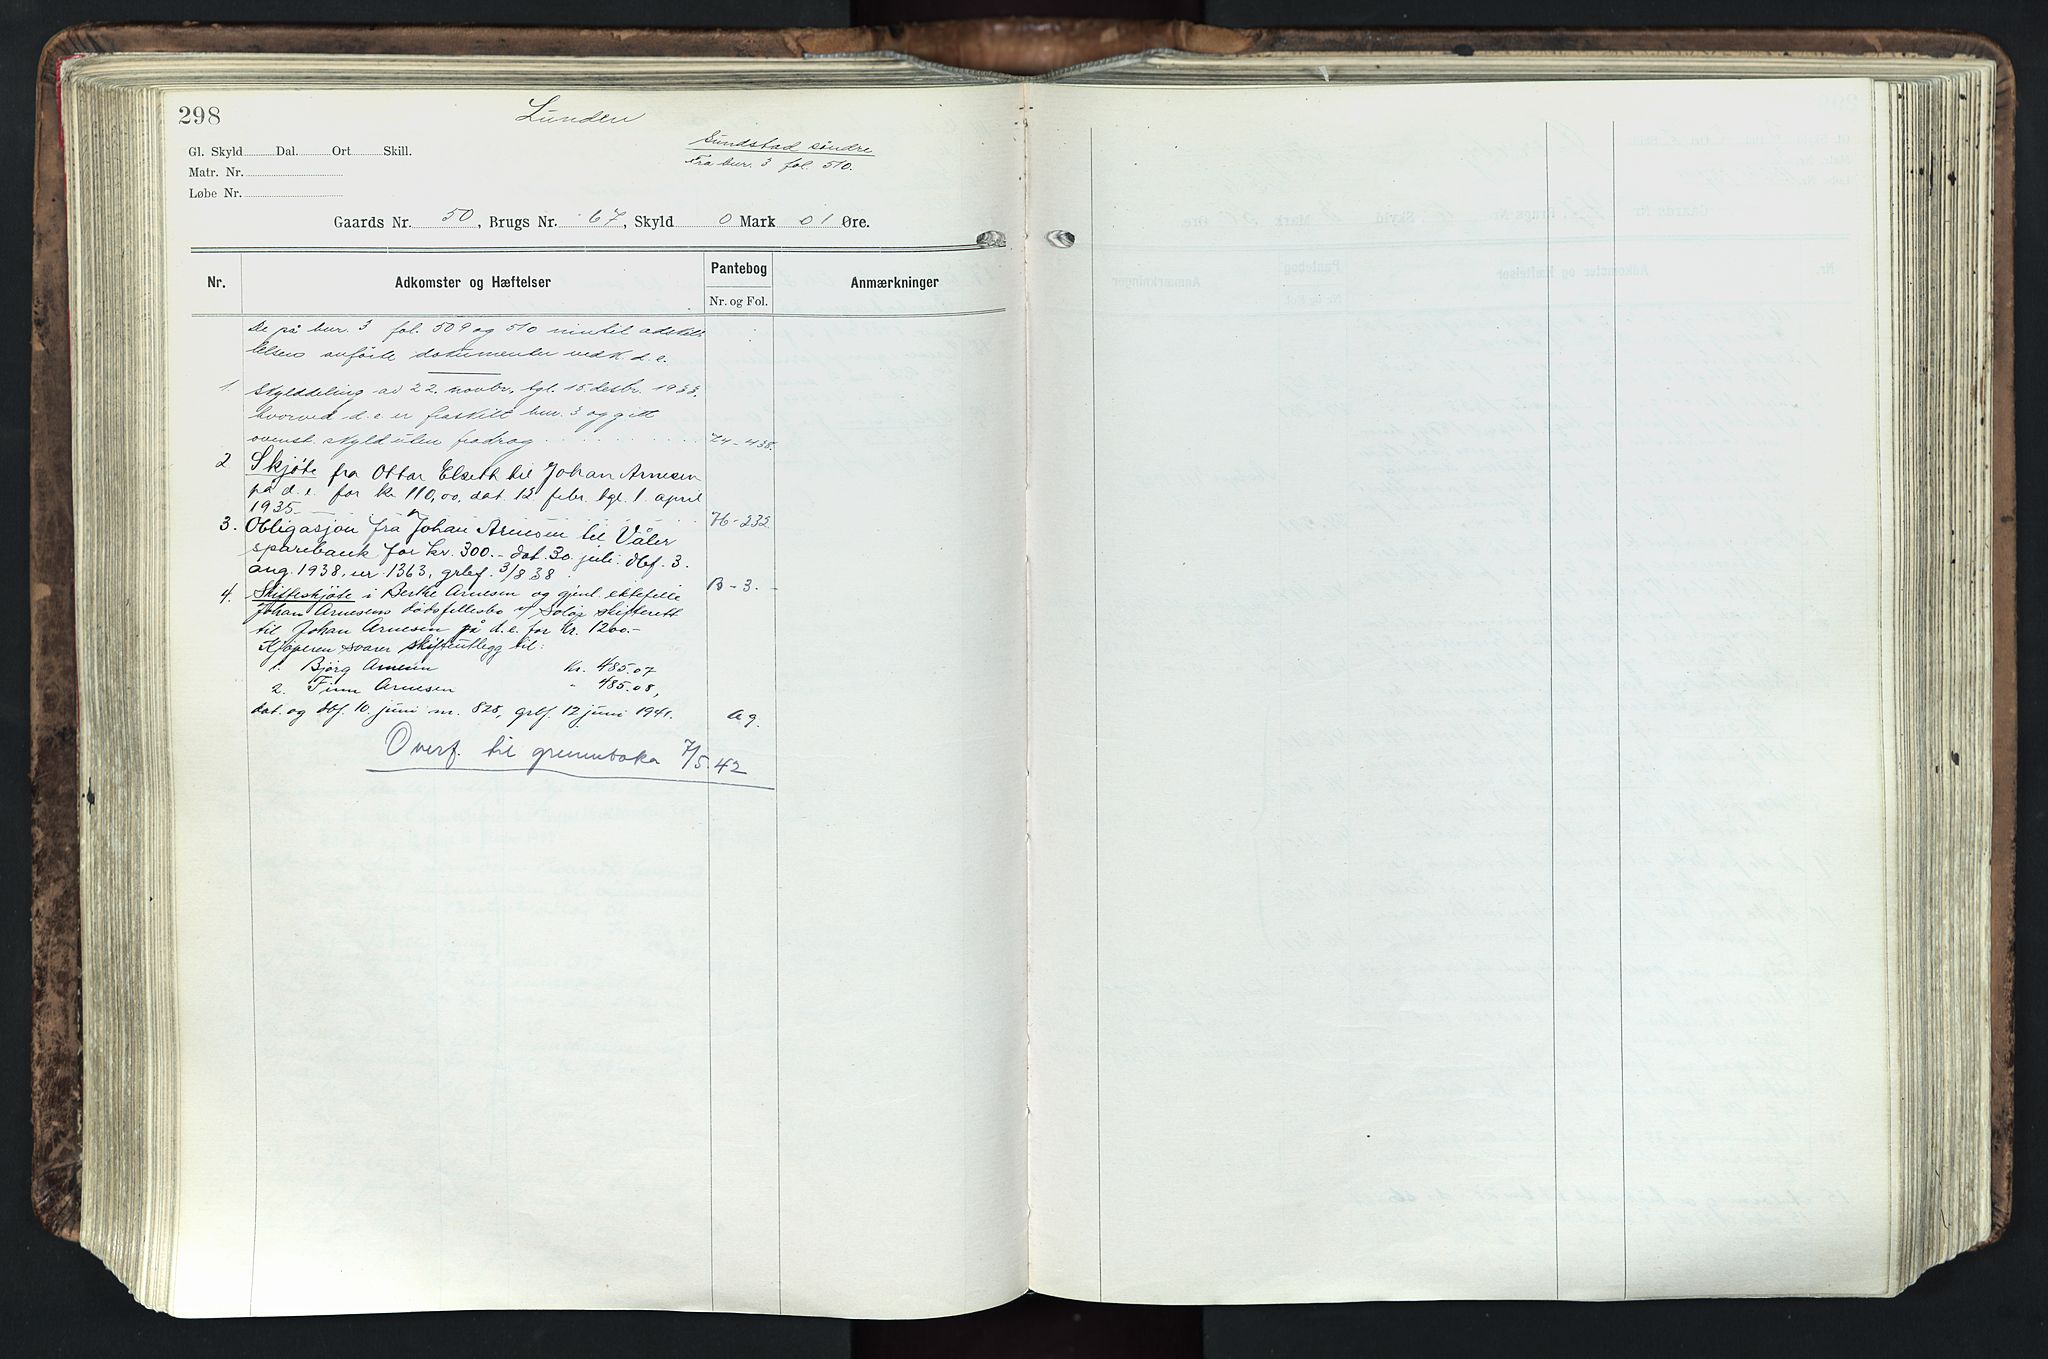 298
Lunden
Gl. Skyld Dal. Ort Skill.
Matr. Nr.
Løbe Nr.
Sundstad søndre
Fra bnr. 3 fol. 510.
Gaards Nr. 50, Brugs Nr. 67, Skyld 0 Mark 01 Øre.
Nr. Adkomster og Hæftelser Pantebog Anmærkninger
Nr. og Fol.
De på bnr. 3 fol. 509 og 510 inntil adskil-
lelsen anførte dokumenter vedk. d. e.
1. Skylddeling av 22. novbr. tgl. 15. desbr. 1933,
hvorved d. e. er fraskilt bnr. 3 og gitt
ovenst. skyld uten fradrag 74-438.
2 Skjøte fra Ottar Elseth til Johan Arnesen
på d. e. for kr 110,00, dat. 12 febr. tgl. 1. april
1935 76-232
3. Obligasjon fra Johan Arnesen til Våler
sparebank for kr. 300.- dat. 30. juli. dbf. 3.
aug. 1938, nr. 1363, grbf. 3/8 38 B-3.
4. Skifteskjøte i Berthe Arnesen og gjenl. ektefelle
Johan Arnesens dødsfellesbo v/ Solør skifterett
til Johan Arnesen på d. e. for kr. 1200.-
Kjøperen svarer skifteutlegg til:
1. Bjørg Arnesen Kr. 485.07
2. Finn Arnesen " 485.08,
dat. og dbf. 10. juni nr. 828, grbf. 12 juni 1941. A 9.
Overf. til grunnboka 7/5.42